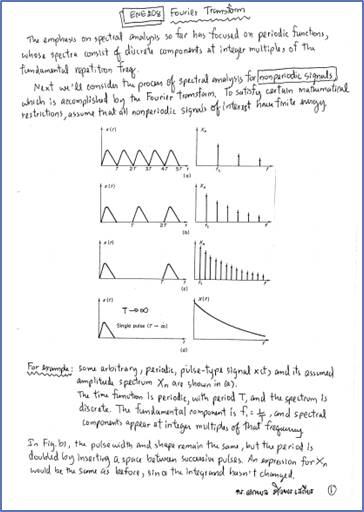 ENE208 Fourier Transform
The emphasis on spectral analysis so far has focused on periodic functions,
whose spectra consist of discrete components at integer multiples of the
fundamental repetition freq.
Next we'll consider the process of spectral analysis for nonperiodic signals,
which is accomplished by the Fourier transform. To satisfy certain mathematical
restrictions, assume that all nonperiodic signals of interest have finite energy.
x(t) Xn
T 2T 3T 4T 5T t f1 f
(a)
x(t) Xn
T 2T t f1 f
(b)
x(t) Xn
T t f
(c)
x(t) X(f)
T→∞
Single pulse (T → ∞)
t f
(d)
For example: some arbitrary, periodic, pulse-type signal x(t) and its assumed
amplitude spectrum Xn are shown in (a).
The time function is periodic, with period T, and the spectrum is
discrete. The fundamental component is f1 = 1/T, and spectral
components appear at integer multiples of that frequency
In Fig. b), the pulse width and shape remain the same, but the period is
doubled by inserting a space between successive pulses. An expression for Xn
would be the same as before, since the integrand hasn't changed.
1